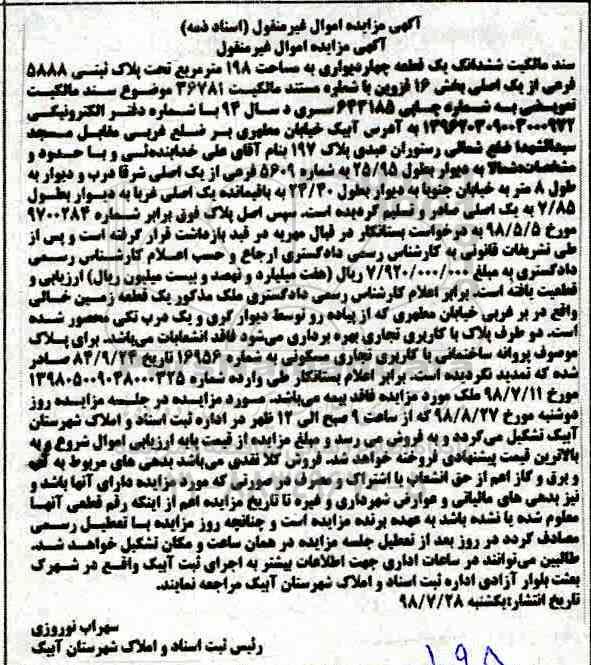 آگهی مزایده اموال غیرمنقول (اسناد ذمه)
آگهی مزایده اموال غیرمنقول
سند مالکیت ششدانگ یک قطعه چهاردیواری به مساحت ۱۹۸ مترمربع تحت پلاک ثبتی ۵۸۸۸
فرعی از یک اصلی بخش ۱۶ قزوین با شماره مستند مالکیت ۳۶۷۸۱ موضوع سند مالکیت
تعویضی به شماره چاپی ۶۴۳۱۸۵ سری د سال ۹۳ با شماره دفتر الکترونیکی
۱۳۹۶۲۰۳۰۹۰۰۳۰۰۰۹۷۲ به آدرس آبیک خیابان مطهری بر ضلع غربی مقابل مسجد
سیدالشهدا ضلع شمالی رستوران عبدی پلاک ۱۹۷ بنام آقای علی خدابنده‌نی و با حدود و
مشخصات:شمالا به دیوار بطول ۲۵/۹۵ به شماره ۵۶۰۹ فرعی از یک اصلی شرقا درب و دیوار به
طول ۸ متر به خیابان جنوبا به دیوار بطول ۲۴/۳۰ به باقیمانده یک اصلی غربا به دیوار بطول
۷/۸۵ به یک اصلی صادر و تسلیم گردیده است. سپس اصل پلاک فوق برابر شماره ۹۷۰۰۲۸۴
مورخ ۹۸/۵/۵ به درخواست بستانکار در قبال مهریه در قید بازداشت قرار گرفته است و پس از
طی تشریفات قانونی به کارشناس رسمی دادگستری ارجاع و حسب اعلام کارشناس رسمی
دادگستری به مبلغ ۷/۹۲۰/۰۰۰/۰۰۰ ریال (هفت میلیارد و نهصد و بیست میلیون ریال) ارزیابی و
قطعیت یافته است. برابر اعلام کارشناس رسمی دادگستری ملک مذکور یک قطعه زمین خالی
واقع در بر غربی خیابان مطهری که از پیاده رو توسط دیوار گری و یک درب تکی محصور شده
است. دو طرف پلاک با کاربری تجاری بهره برداری می‌شود فاقد انشعابات می‌باشد. برای پلاک
موصوف پروانه ساختمانی با کاربری تجاری مسکونی به شماره ۱۶۹۵۶ تاریخ ۸۴/۹/۲۴ صادر
شده که تمدید نگردیده است. برابر اعلام بستانکار طی وارده شماره ۱۳۹۸۰۵۰۰۹۰۳۸۰۰۰۳۲۵
مورخ ۹۸/۷/۱۱ ملک مورد مزایده فاقد بیمه می‌باشد. مورد مزایده در جلسه مزایده روز
دوشنبه مورخ ۹۸/۸/۲۷ که از ساعت ۹ صبح الی ۱۲ ظهر در اداره ثبت اسناد و املاک شهرستان
آبیک تشکیل می‌گردد و به فروش می رسد و مبلغ مزایده از قیمت پایه ارزیابی اموال شروع و به
بالاترین قیمت پیشنهادی فروخته خواهد شد. فروش کلا نقدی می‌باشد بدهی های مربوط به آب
و برق و گاز اعم از حق انشعاب یا اشتراک و مصرف در صورتی که مورد مزایده دارای آنها باشد و
نیز بدهی های مالیاتی و عوارض شهرداری و غیره تا تاریخ مزایده اعم از اینکه رقم قطعی آنها
معلوم شده یا نشده باشد به عهده برنده مزایده است و چنانچه روز مزایده با تعطیل رسمی
مصادف گردد در روز بعد از تعطیل جلسه مزایده در همان ساعت و مکان تشکیل خواهد شد.
طالبین می‌توانند در ساعات اداری جهت اطلاعات بیشتر به اجرای ثبت آبیک واقع در شهرک
بعثت بلوار آزادی اداره ثبت اسناد و املاک شهرستان آبیک مراجعه نمایند.
تاریخ انتشار:یکشنبه ۹۸/۷/۲۸
سهراب نوروزی
رئیس ثبت اسناد و املاک شهرستان آبیک